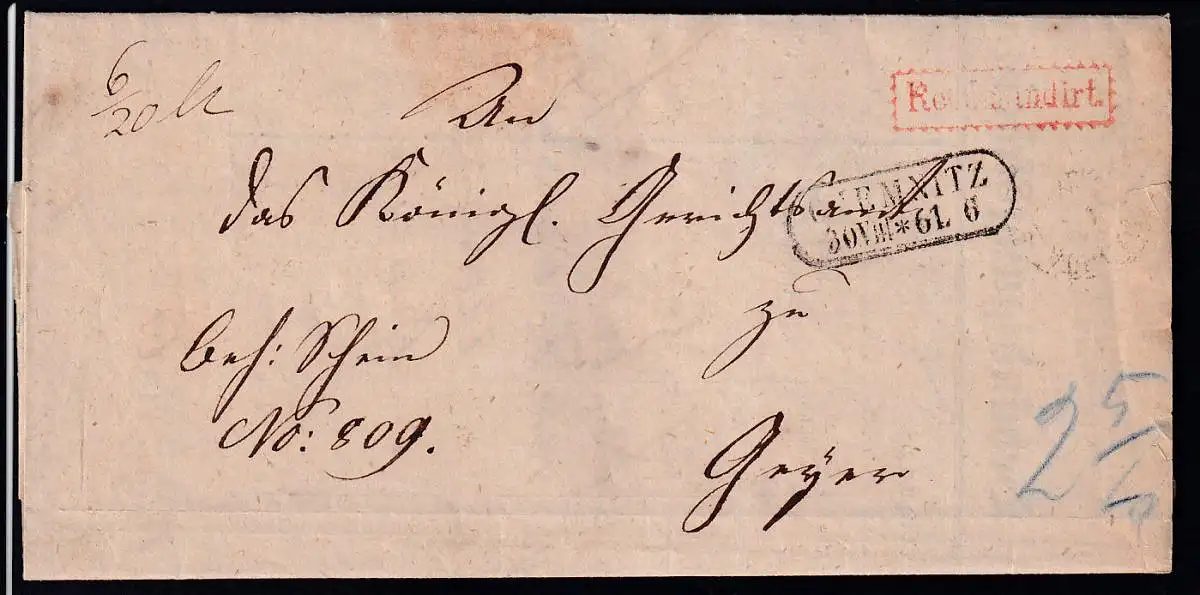 6/20
An
Recomandirt.
das Königl. Gerichtsamt
CHEMNITZ
30 VIII * 61. 6
zu
Beh: Schein
No: 809.
Geyer
2 5/10